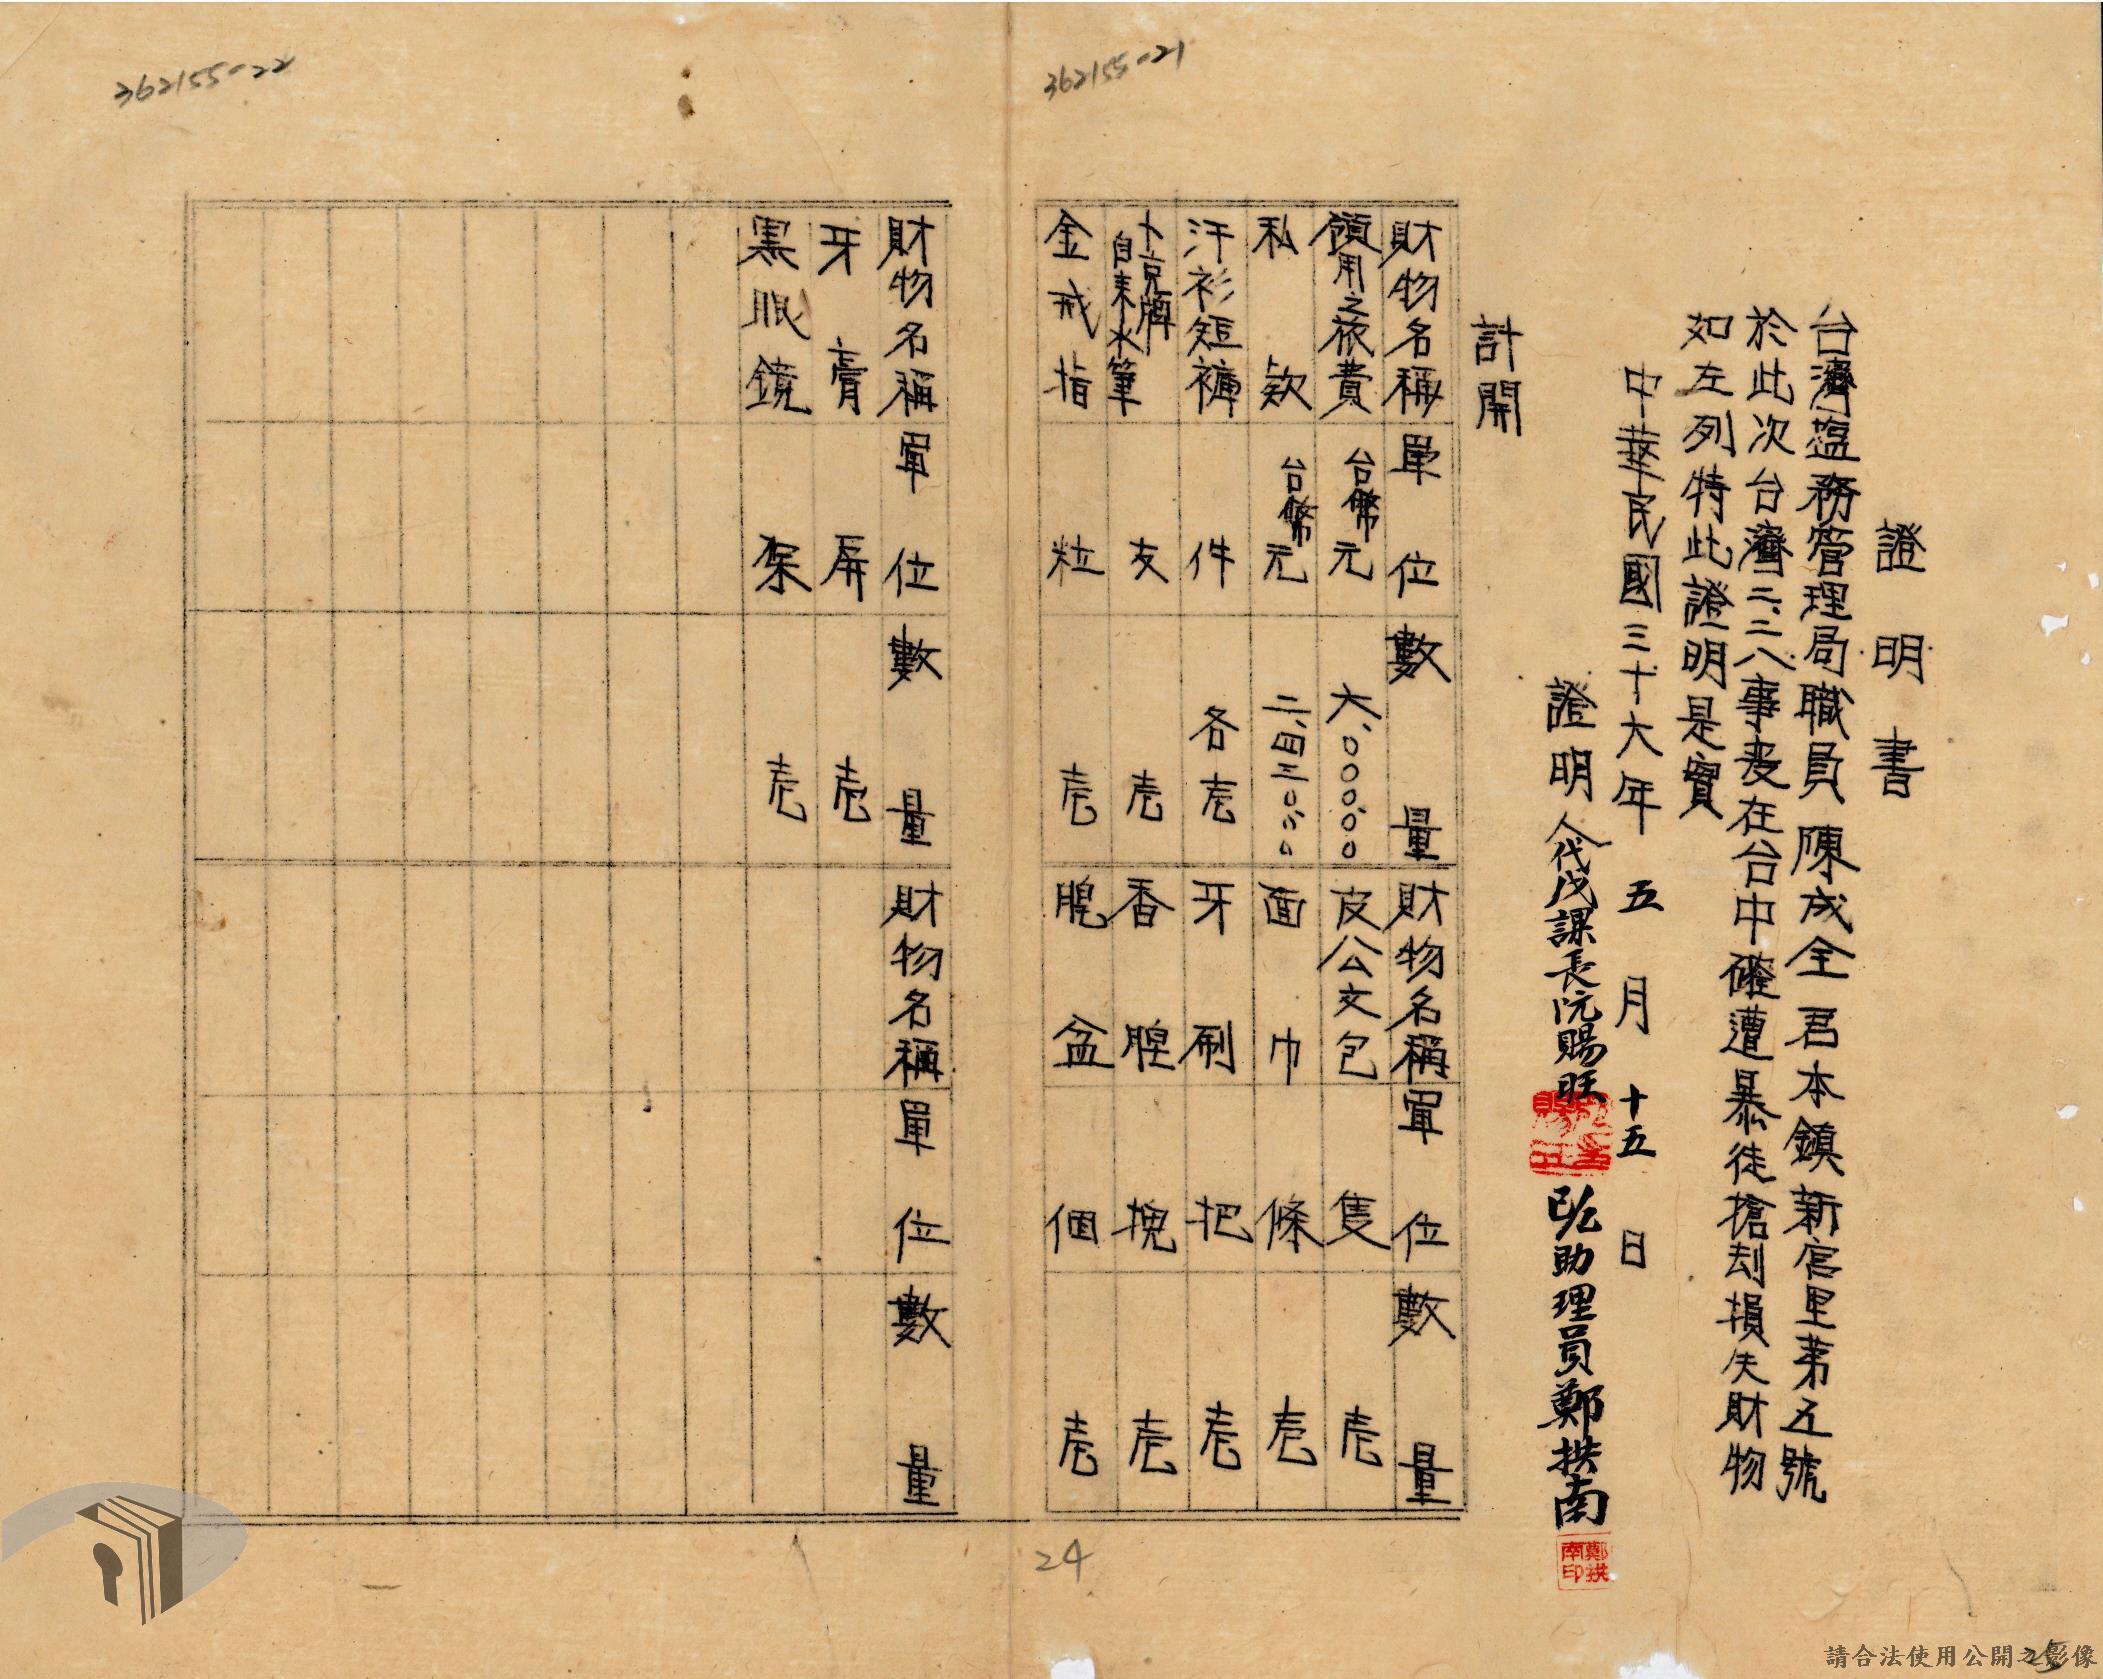 362155-21
362155-22
證明書
台灣塩務管理局職員陳成全君本鎮新宮里第五號
於此次台灣二.二八事変在台中確遭暴徒搶刦損失財物
如左列特此證明是實
中華民國三十六年五月十五日
證明人代戊課長阮賜旺 助理員鄭拱南
鄭拱南印
計開
財物名稱 單位 數量 財物名稱 單位 數量
領用之旅費 台幣元 六、〇〇〇.〇〇 皮公文包 隻 壱
私款 台幣元 二、四三〇.〇〇 面巾 條 壱
汗衫短褲 件 各壱 牙刷 把 壱
卜京牌自來水筆 支 壱 香 壱
金戒指 粒 壱 盆 個 壱
財物名稱 單位 數量 財物名稱 單位 數量
牙膏 屏 壱
黑眼鏡 架 壱
24
25
請合法使用公開之影像